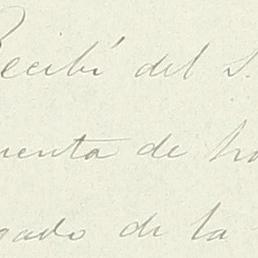 Recibí del S.
uenta de ho
gado de la